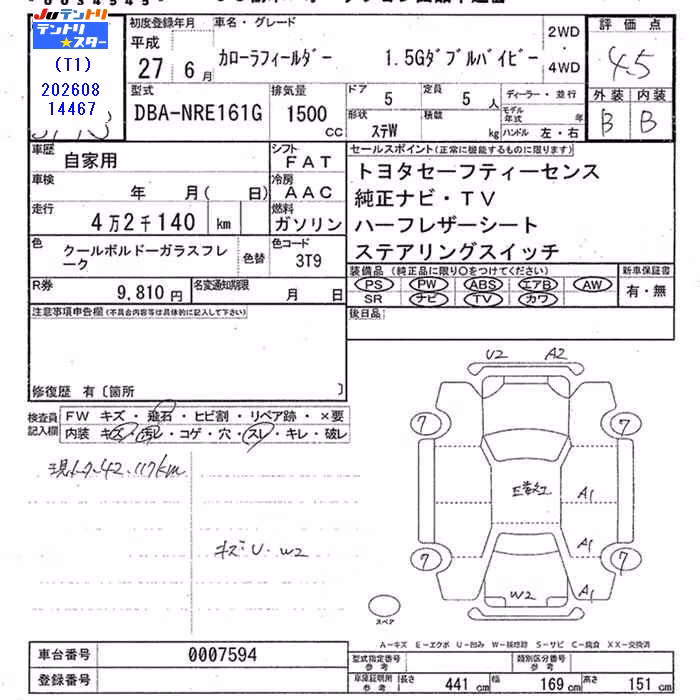 JUテントリ
テントリ
★スター
(T1)
202608
14467
初度登録年月
平成
27 6月
車名・グレード
カローラフィールダー 1.5Gダブルバイビー
2WD
4WD
評価点
4.5
外装 内装
B B
型式
DBA-NRE161G
排気量
1500
CC
ドア
5
定員
5人
形状
ステW
積載
kg
ディーラー・並行
モデル年式 年
ハンドル 左・右
車歴
自家用
シフト
FAT
車検
年 月( 日)
冷房
AAC
走行
4万2千140 km
燃料
ガソリン
セールスポイント(正常に機能するものに限ります)
トヨタセーフティーセンス
純正ナビ・TV
ハーフレザーシート
ステアリングスイッチ
色
クールボルドーガラスフレ
ーク
色替
色コード
3T9
装備品(純正品に限り○をつけてください)
PS PW ABS エアB AW
SR ナビ TV カワ
新車保証書
有・無
R券
9,810円
名変通知期限
月 日
注意事項申告欄(不具合内容等は具体的に記入して下さい)
後日品
修復歴 有〔箇所 〕
検査員
記入欄
FW キズ・飛石・ヒビ割・リペア跡・×要
内装 キズ・汚レ・コゲ・穴・スレ・キレ・破レ
現メータ42,117km
キズ U・W2
U2 A2
7 7
A1
A1
7 7
A1
W2
スペア
A-キズ E-エクボ U-凹み W-補修跡 S-サビ C-腐食 XX-交換済
車台番号
0007594
登録番号
型式指定番号
参考
類別区分番号
参考
車庫証明用
参考
長さ
441cm
幅
169cm
高さ
151cm